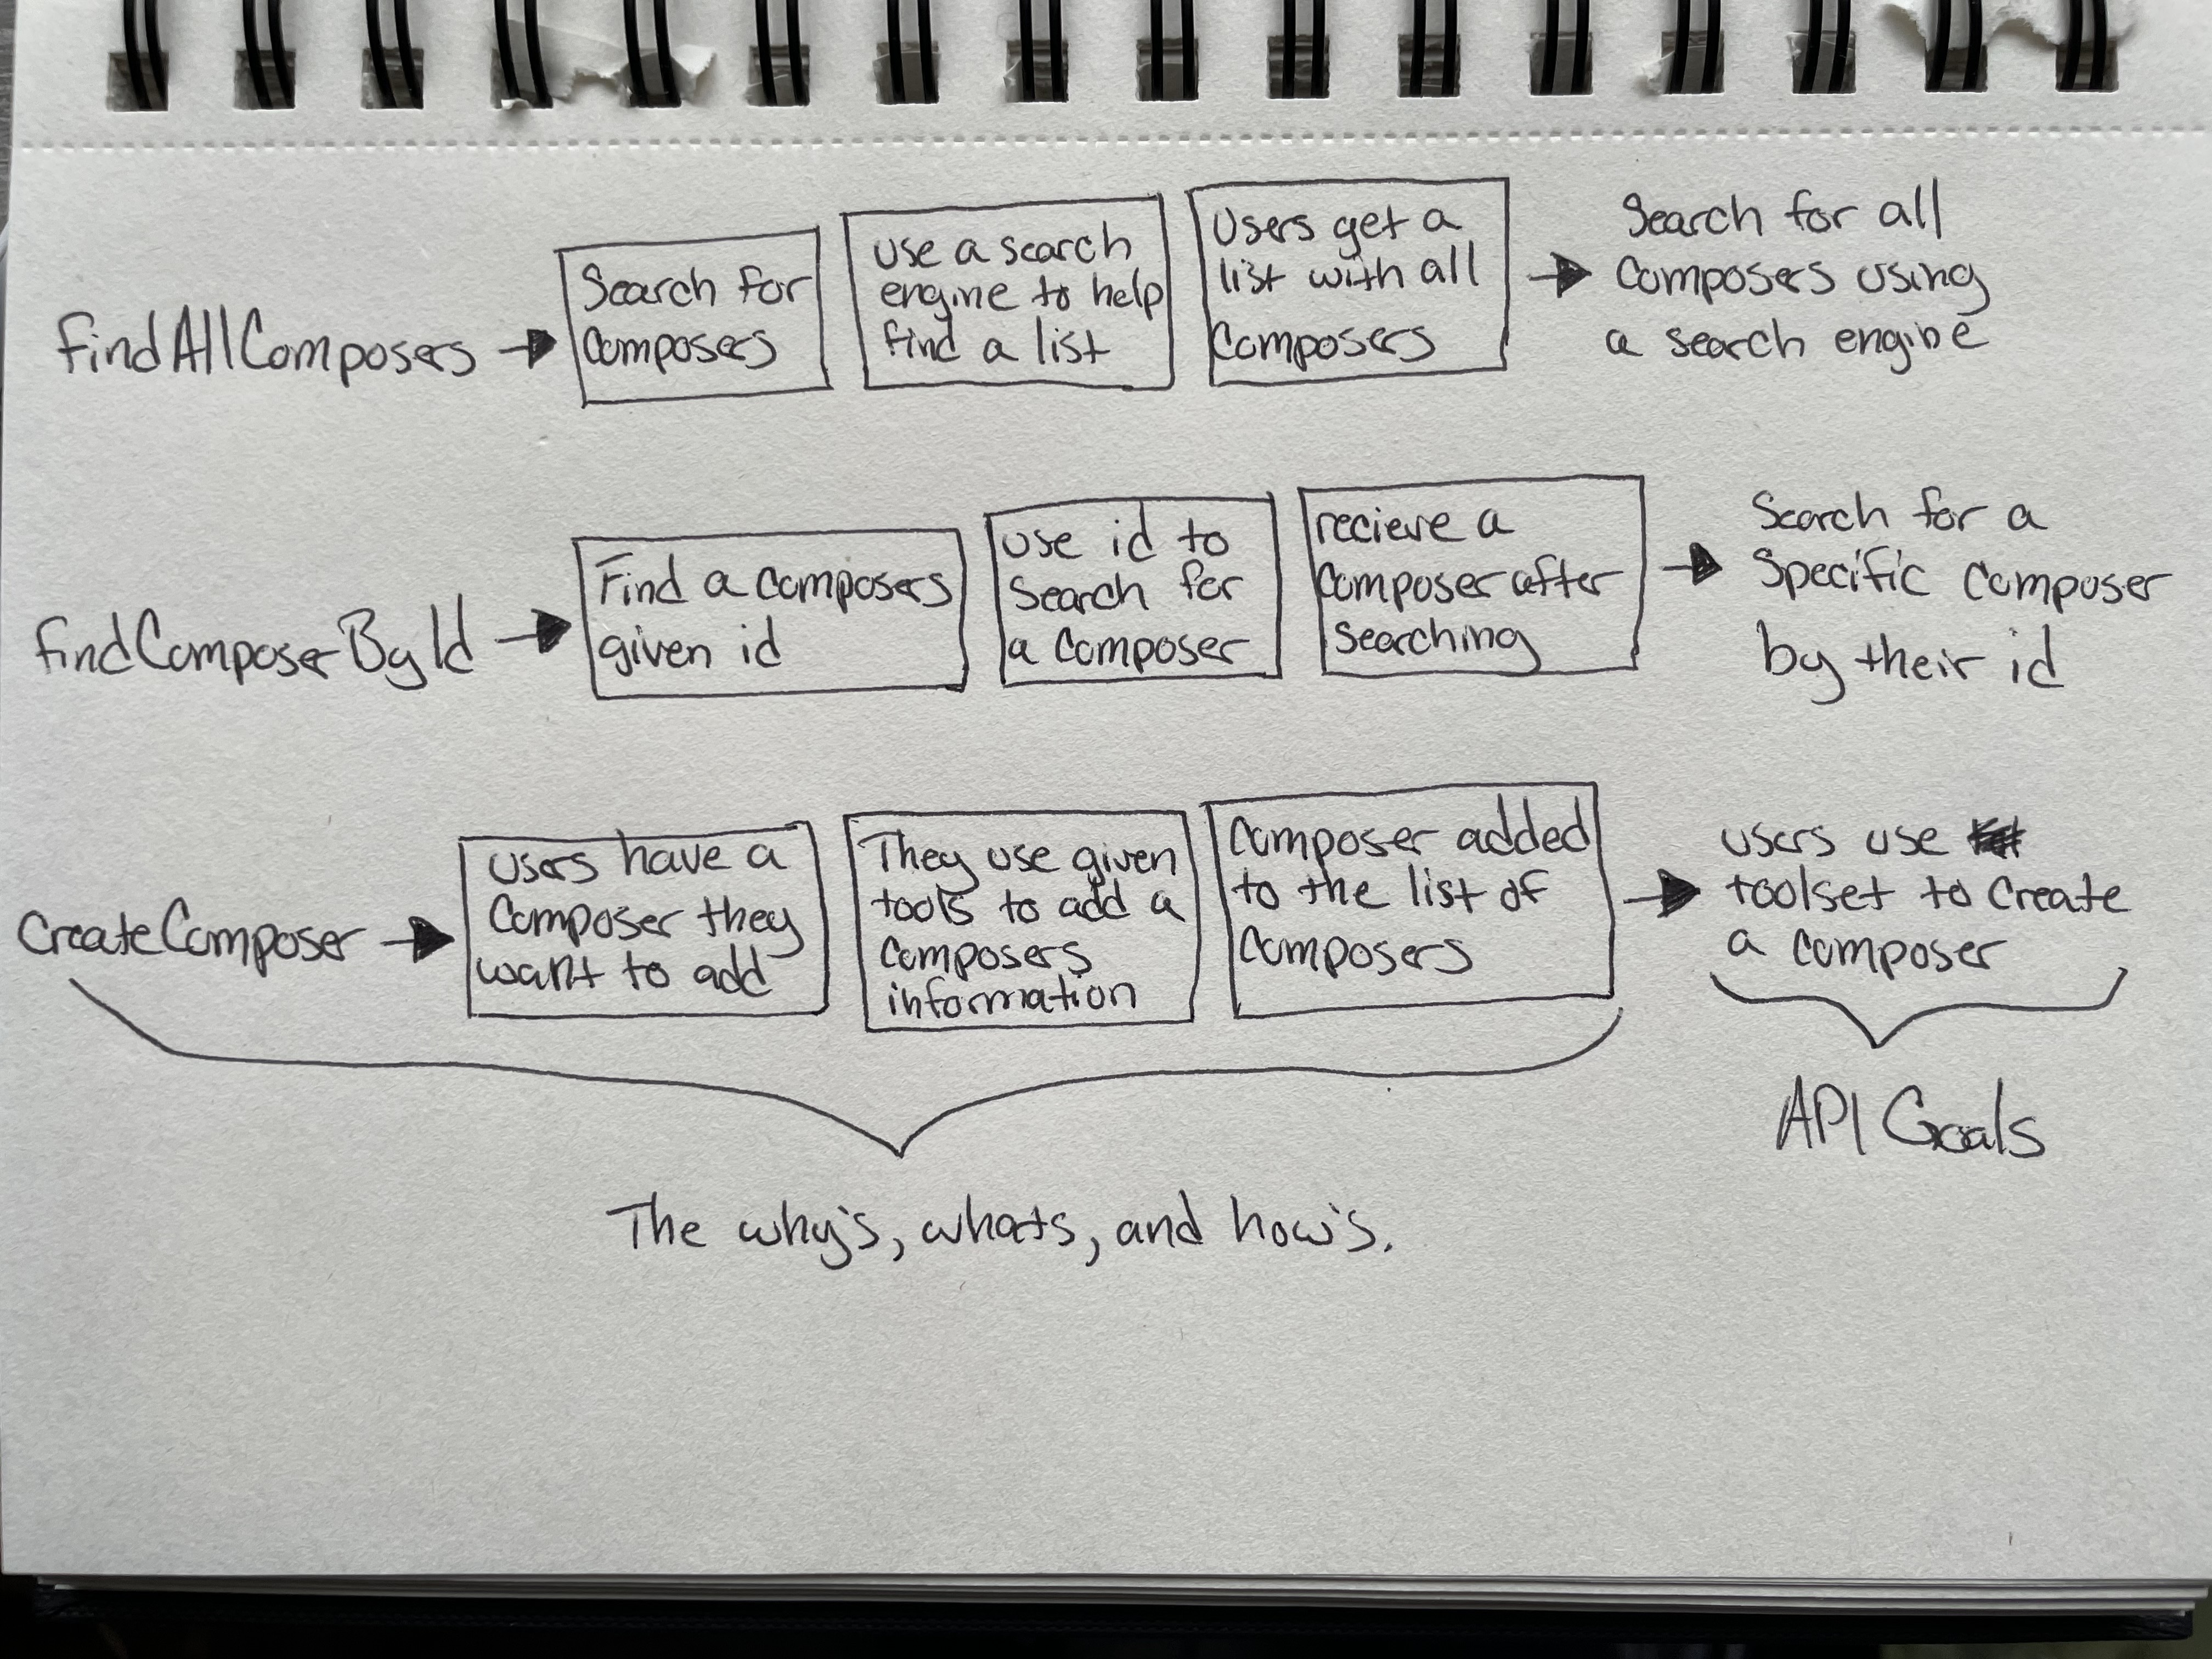 findAllComposers →
Search for
Composers
use a search
engine to help
find a list
Users get a
list with all
Composers
→
Search for all
Composers using
a search engine
findComposerById →
Find a composers
given id
use id to
Search for
a composer
recieve a
Composer after
Searching
→
Search for a
Specific Composer
by their id
CreateComposer →
users have a
Composer they
want to add
They use given
tools to add a
Composer's
information
Composer added
to the list of
Composers
→
users use
toolset to create
a composer
The why's, whats, and how's.
API Goals